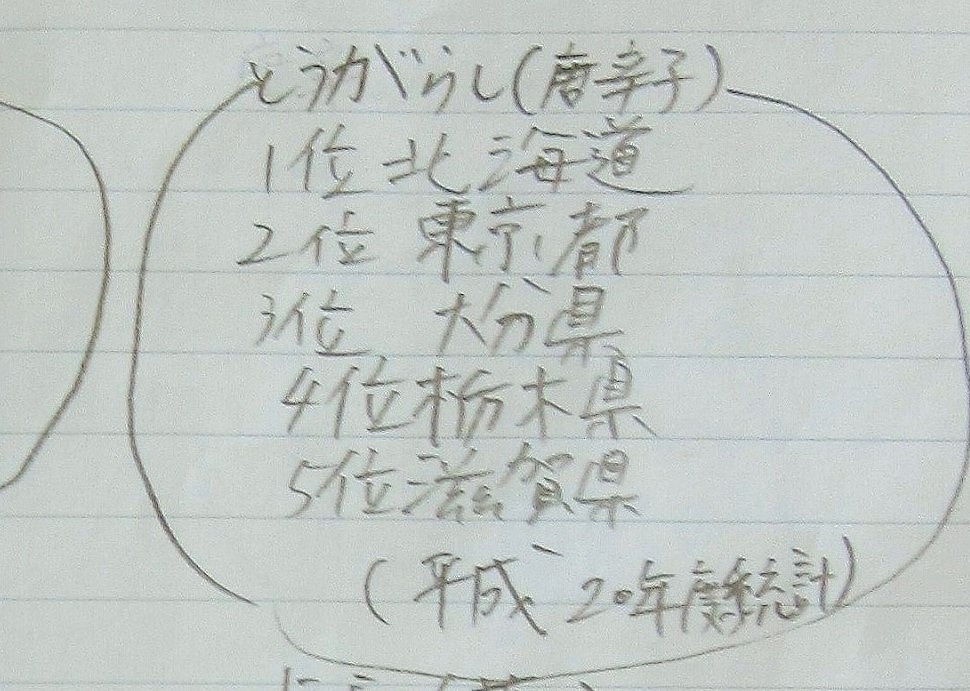 とうがらし(唐辛子)
1位 北海道
2位 東京都
3位 大分県
4位 栃木県
5位 滋賀県
(平成20年度統計)